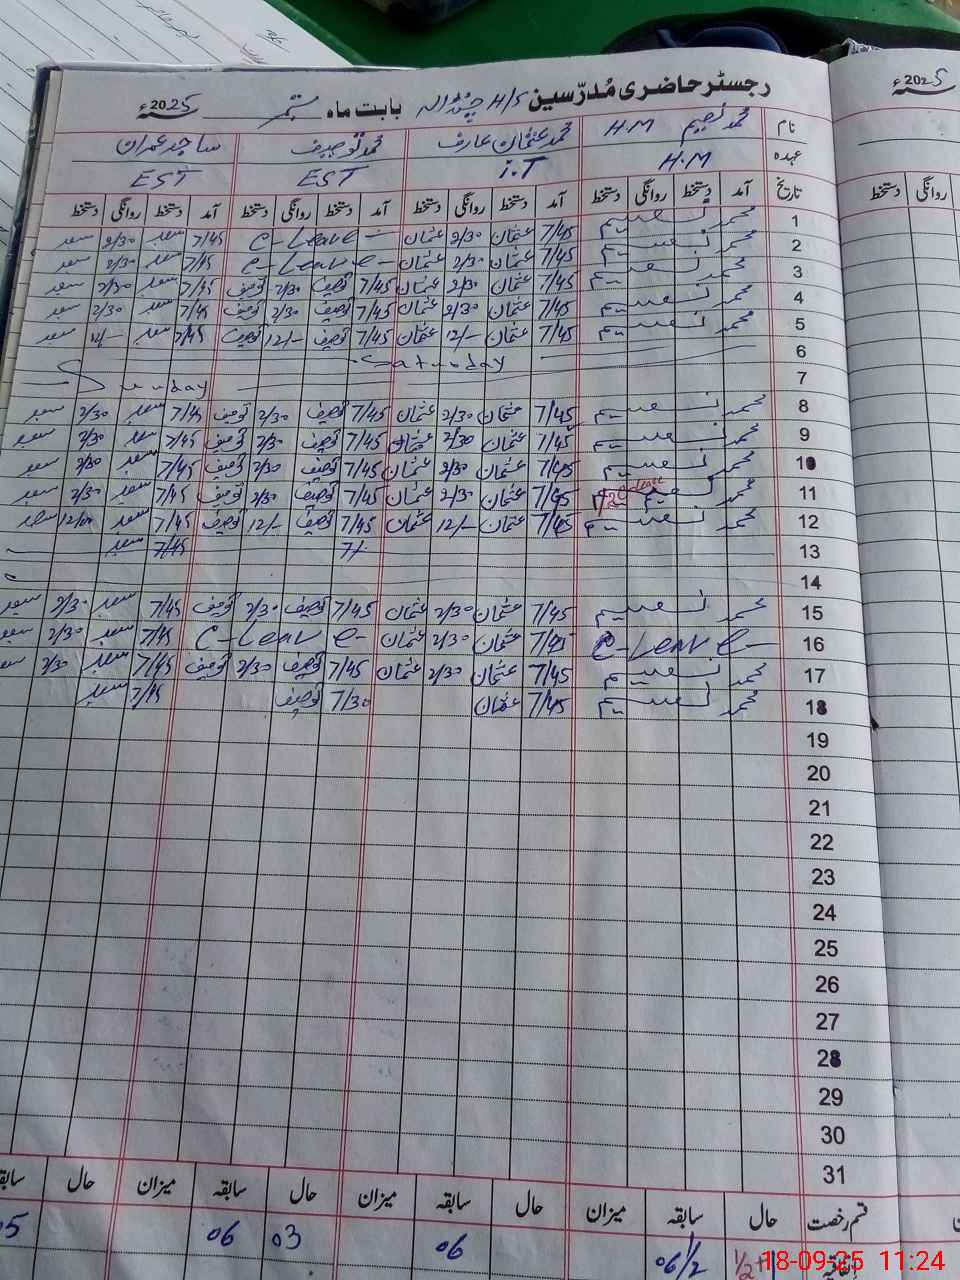 رجسٹر حاضری مُدرّسین H/S چنڈالہ بابت ماہ ستمبر 2025ء
2025ء
نام محمد نعیم H.M محمد عثمان عارف محمد توصیف ساجد عمران
عہدہ H.M I.T EST EST
تاریخ آمد دستخط روانگی دستخط آمد دستخط روانگی دستخط آمد دستخط روانگی دستخط آمد دستخط روانگی دستخط
روانگی دستخط
1 محمد نعیم 7/45 عثمان 2/30 عثمان c-Leave- 7/45 2/30
2 محمد نعیم 7/45 عثمان 2/30 عثمان c-Leave- 7/45 2/30
3 محمد نعیم 7/45 عثمان 2/30 عثمان 7/45 توصیف 2/30 توصیف 7/45 2/30
4 محمد نعیم 7/45 عثمان 2/30 عثمان 7/45 توصیف 2/30 توصیف 7/45 2/30
5 محمد نعیم 7/45 عثمان 12/- عثمان 7/45 توصیف 12/- توصیف 7/45 12/-
6 Saturday
7 Sunday
8 محمد نعیم 7/45 عثمان 2/30 عثمان 7/45 توصیف 2/30 توصیف 7/45 2/30
9 محمد نعیم 7/45 عثمان 2/30 عثمان 7/45 توصیف 2/30 توصیف 7/45 2/30
10 محمد نعیم 7/45 عثمان 2/30 عثمان 7/45 توصیف 2/30 توصیف 7/45 2/30
11 محمد نعیم 1/2 cleave 7/45 عثمان 2/30 عثمان 7/45 توصیف 2/30 توصیف 7/45 2/30
12 محمد نعیم 7/45 عثمان 12/- عثمان 7/45 توصیف 12/- توصیف 7/45
13 7/- 7/45
14
15 محمد نعیم 7/45 عثمان 2/30 عثمان 7/45 توصیف 2/30 توصیف 7/45 2/30
16 c-Leave- 7/45 عثمان 2/30 عثمان c-Leave- 7/45 2/30
17 محمد نعیم 7/45 عثمان 2/30 عثمان 7/45 توصیف 2/30 توصیف 7/45 2/30
18 محمد نعیم 7/45 عثمان 7/30 توصیف 7/45
19
20
21
22
23
24
25
26
27
28
29
30
31
قسم رخصت حال سابقہ میزان حال سابقہ میزان حال سابقہ میزان حال سابقہ
اتفاقیہ 1/2+1 06 1/2 06 03 06 05
18-09-25 11:24